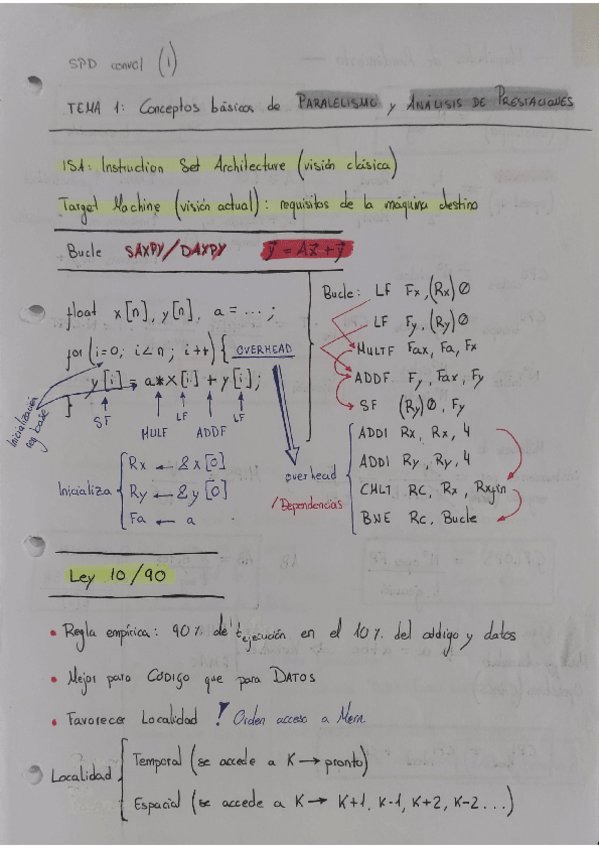 SPD convol (1)
TEMA 1: Conceptos básicos de PARALELISMO y ANÁLISIS DE PRESTACIONES
ISA: Instruction Set Architecture (visión clásica)
Target Machine (visión actual): requisitos de la máquina destino
Bucle SAXPY/DAXPY y⃗ = Ax⃗ + y⃗
float x[n], y[n], a = ...;
for (i=0; i<n; i++) { OVERHEAD
y[i] = a*x[i] + y[i];
}
Inicialización reg base
SF LF LF
MULF ADDF
Inicializa { Rx ← &x[0]
Ry ← &y[0]
Fa ← a
Bucle: LF Fx, (Rx)0
LF Fy, (Ry)0
MULTF Fax, Fa, Fx
ADDF Fy, Fax, Fy
SF (Ry)0, Fy
overhead
/Dependencias
ADDI Rx, Rx, 4
ADDI Ry, Ry, 4
CMLT RC, Rx, Rxfin
BNE Rc, Bucle
Ley 10/90
• Regla empírica: 90% de tejecución en el 10% del código y datos
• Mejor para CÓDIGO que para DATOS
• Favorecer Localidad ! Orden acceso a Mem.
Localidad { Temporal (se accede a K → pronto)
Espacial (se accede a K → K+1, K-1, K+2, K-2...)